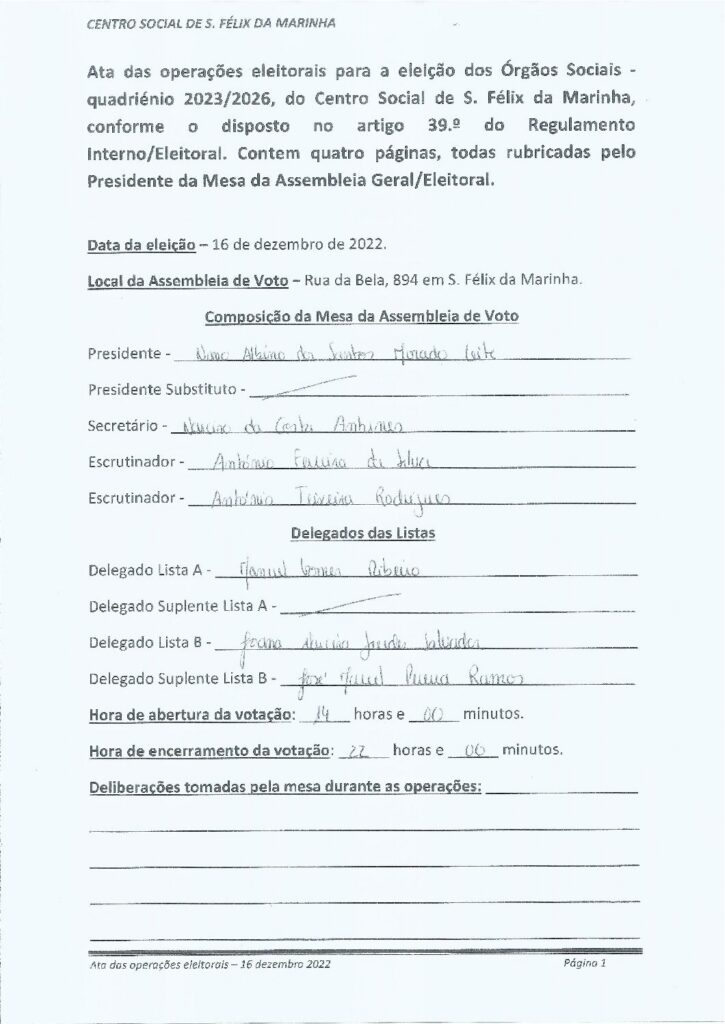 CENTRO SOCIAL DE S. FÉLIX DA MARINHA
Ata das operações eleitorais para a eleição dos Órgãos Sociais -
quadriénio 2023/2026, do Centro Social de S. Félix da Marinha,
conforme o disposto no artigo 39.º do Regulamento
Interno/Eleitoral. Contem quatro páginas, todas rubricadas pelo
Presidente da Mesa da Assembleia Geral/Eleitoral.
Data da eleição – 16 de dezembro de 2022.
Local da Assembleia de Voto – Rua da Bela, 894 em S. Félix da Marinha.
Composição da Mesa da Assembleia de Voto
Presidente - Nuno Albino dos Santos Leite
Presidente Substituto -
Secretário - da Costa Antunes
Escrutinador - António Ferreira da Silva
Escrutinador - António Teixeira Rodrigues
Delegados das Listas
Delegado Lista A - Manuel Gomes Ribeiro
Delegado Suplente Lista A -
Delegado Lista B - Joana Salvador
Delegado Suplente Lista B - José Manuel Ramos
Hora de abertura da votação: 14 horas e 00 minutos.
Hora de encerramento da votação: 22 horas e 00 minutos.
Deliberações tomadas pela mesa durante as operações:
Ata das operações eleitorais – 16 dezembro 2022
Página 1